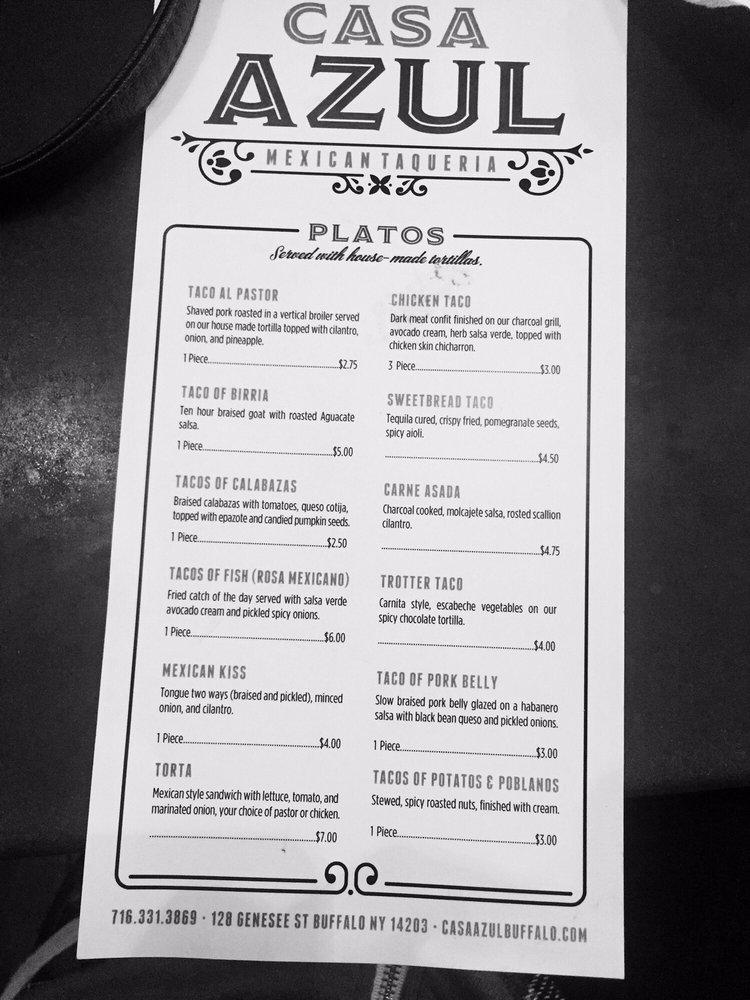 CASA
AZUL
MEXICAN TAQUERIA
PLATOS
Served with house-made tortillas.
TACO AL PASTOR
Shaved pork roasted in a vertical broiler served
on our house made tortilla topped with cilantro,
onion, and pineapple.
1 Piece...$2.75
TACO OF BIRRIA
Ten hour braised goat with roasted Aguacate
salsa.
1 Piece...$5.00
TACOS OF CALABAZAS
Braised calabazas with tomatoes, queso cotija,
topped with epazote and candied pumpkin seeds.
1 Piece...$2.50
TACOS OF FISH (ROSA MEXICANO)
Fried catch of the day served with salsa verde
avocado cream and pickled spicy onions.
1 Piece...$6.00
MEXICAN KISS
Tongue two ways (braised and pickled), minced
onion, and cilantro.
1 Piece...$4.00
TORTA
Mexican style sandwich with lettuce, tomato, and
marinated onion, your choice of pastor or chicken.
...$7.00
CHICKEN TACO
Dark meat confit finished on our charcoal grill,
avocado cream, herb salsa verde, topped with
chicken skin chicharron.
3 Piece...$3.00
SWEETBREAD TACO
Tequila cured, crispy fried, pomegranate seeds,
spicy aioli.
...$4.50
CARNE ASADA
Charcoal cooked, molcajete salsa, rosted scallion
cilantro.
...$4.75
TROTTER TACO
Carnita style, escabeche vegetables on our
spicy chocolate tortilla.
...$4.00
TACO OF PORK BELLY
Slow braised pork belly glazed on a habanero
salsa with black bean queso and pickled onions.
1 Piece...$3.00
TACOS OF POTATOS & POBLANOS
Stewed, spicy roasted nuts, finished with cream.
1 Piece...$3.00
716.331.3869 · 128 GENESEE ST BUFFALO NY 14203 · CASAAZULBUFFALO.COM